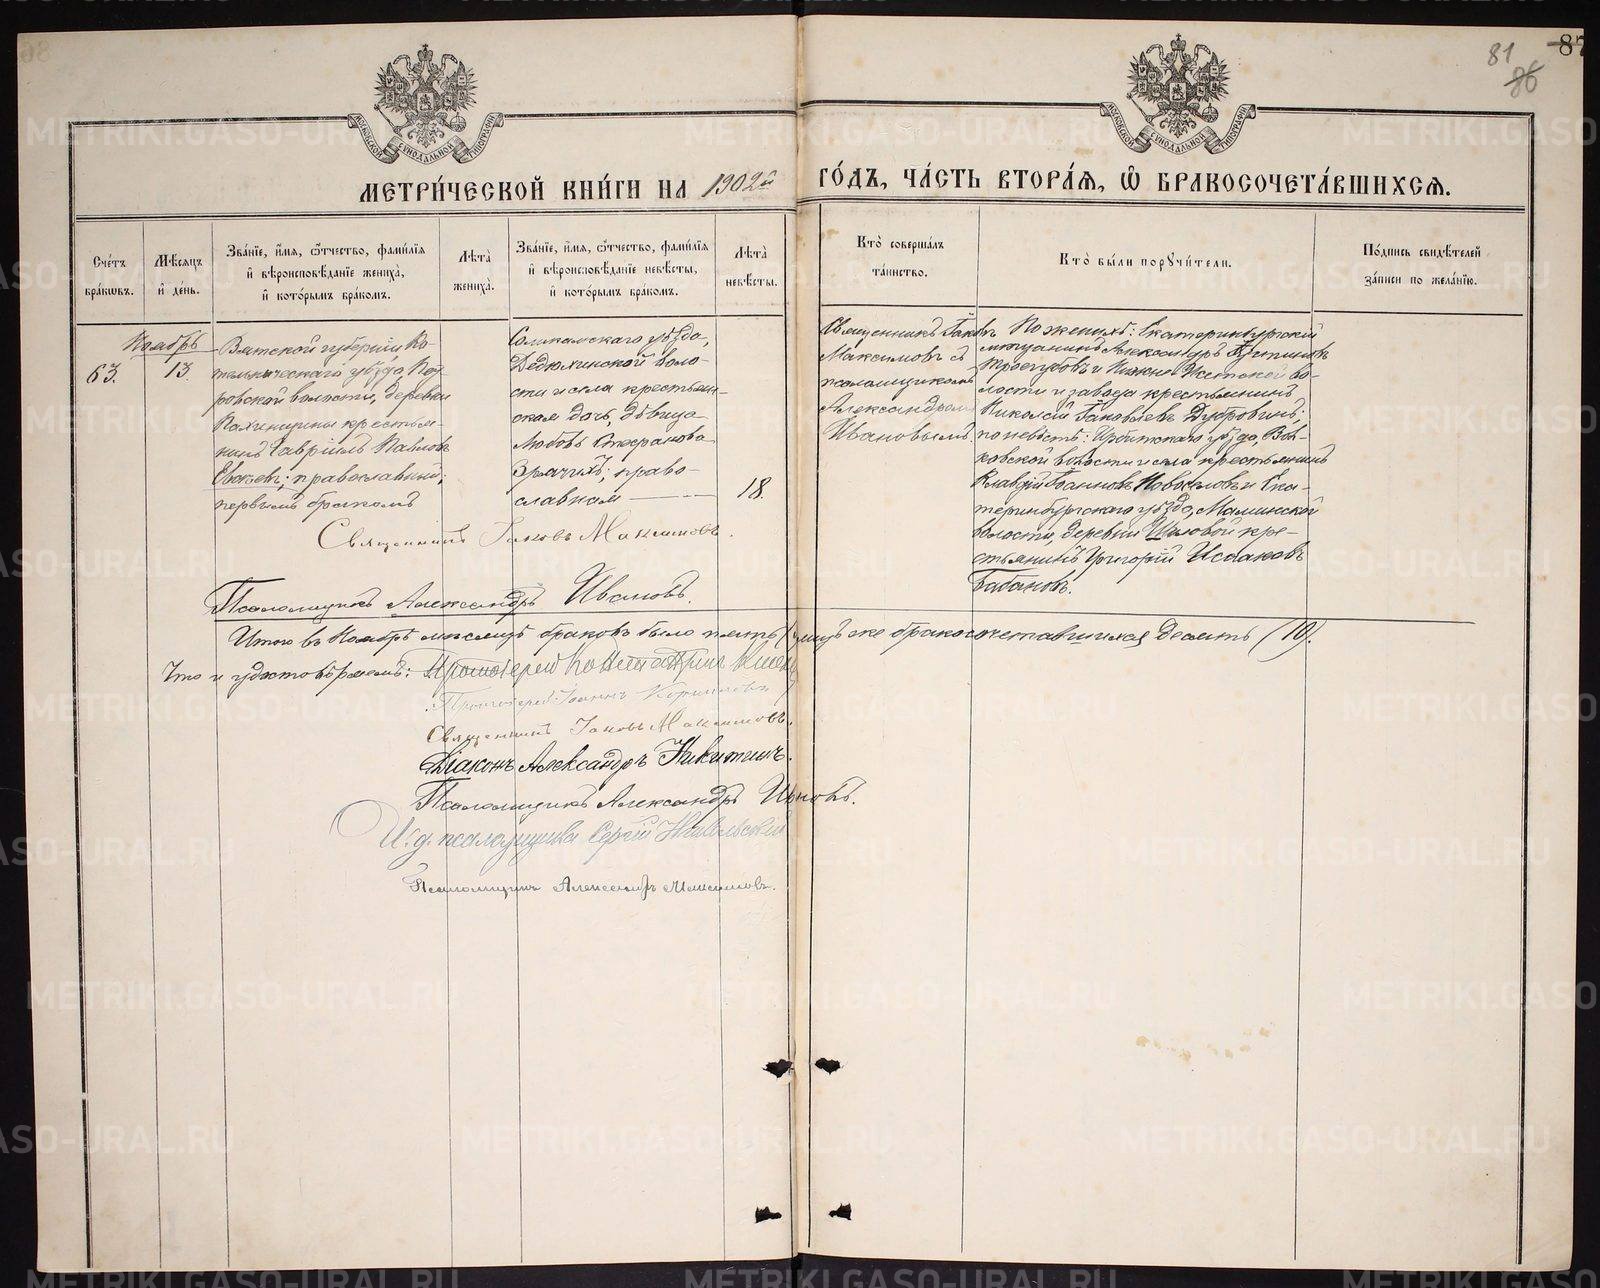 81
86
87
МОСКОВСКОЙ СѴНОДАЛЬНОЙ ТИПОГРАФІИ
МОСКОВСКОЙ СѴНОДАЛЬНОЙ ТИПОГРАФІИ
МЕТРИ́ЧЕСКОЙ КНИ́ГИ НА 1902й ГО́ДЪ, ЧА́СТЬ ВТОРА́Я, Ѽ БРАКОСОЧЕТА́ВШИХСЯ.
Сче́тъ бра́кѡвъ.
Мѣ́сяцъ и҆ де́нь.
Зва́нїе, и҆́мя, ѻ҆́тчество, фами́лїя
и҆ вѣроисповѣ́данїе жениха̀,
и҆ кото́рымъ бра́комъ.
Лѣта̀ жениха̀.
Зва́нїе, и҆́мя, ѻ҆́тчество, фами́лїя
и҆ вѣроисповѣ́данїе невѣ́сты,
и҆ кото́рымъ бра́комъ.
Лѣта̀ невѣ́сты.
Кто̀ соверша́лъ та́инство.
Кто̀ бы́ли порꙋчи́тели.
По́дпись свидѣ́телей за́писи по жела́нїю.
Ноябрь
63.
13.
Вятской губерніи Ко-
тельническаго уѣзда,
ровской волости, деревни
крестья-
нинъ Гавріилъ Павловъ
православный,
первымъ бракомъ
Соликамскаго уѣзда,
Дедюхинской воло-
сти и села крестьян-
ская дочь, дѣвица
Любовь Стефанова
право-
славная
18.
Священникъ Іаковъ
Максимовъ съ
псаломщикомъ
Александромъ
Ивановымъ
По женихѣ: Екатеринбургскій
мѣщанинъ Александръ
и Нижне-Исетской во-
лости и завода крестьянинъ
Николай Іаковлевъ Дубровинъ;
по невѣстѣ: Ирбитскаго уѣзда,
волости и села крестьянинъ
Клавдій Іоанновъ Новоселовъ и Ека-
теринбургскаго уѣзда, Маминской
волости, деревни Шиловой кре-
стьянинъ Григорій Исааковъ
Бабановъ.
Священникъ Іаковъ Максимовъ.
Псаломщикъ Александръ Ивановъ.
Итого въ Ноябрѣ мѣсяцѣ браковъ было пять лицъ же бракосочетавшихся десять (10).
Что и удостовѣряемъ: Протоіерей Константинъ
Протоіерей Іоаннъ
Священникъ Іаковъ Максимовъ.
Діаконъ Александръ Никитинъ.
Псаломщикъ Александръ Ивановъ.
И. д. псаломщика Сергій
Псаломщикъ Александръ Максимовъ.
METRIKI.GASO-URAL.RU